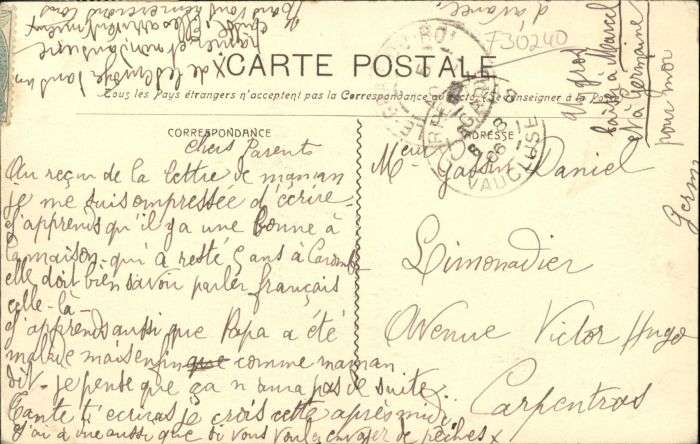 CARTE POSTALE
Tous les Pays étrangers n'acceptent pas la Correspondance au recto. (Se renseigner à la Poste)
730240
CORRESPONDANCE
ADRESSE
VAUCLUSE
chers Parents
Au reçu de la lettre de maman
je me suis empressée d'écrire -
J'apprends qu'il y a une bonne à
la maison - qui a resté 5 ans à Caromb
elle doit bien savoir parler français
celle-là -
J'apprends aussi que Papa a été
malade mais enfin que comme maman
dit - je pense que ça n'aura pas de suite.
Tante t'écrira je crois cette après midi.
J'ai à dire aussi que si vous voulez envoyer de pêches x
x de les envoyer dans un
d'avance
Mr Gassin Daniel
Limonadier
Avenue Victor Hugo
Carpentras
Un gros
baiser à Marcel
et à Germaine
pour moi